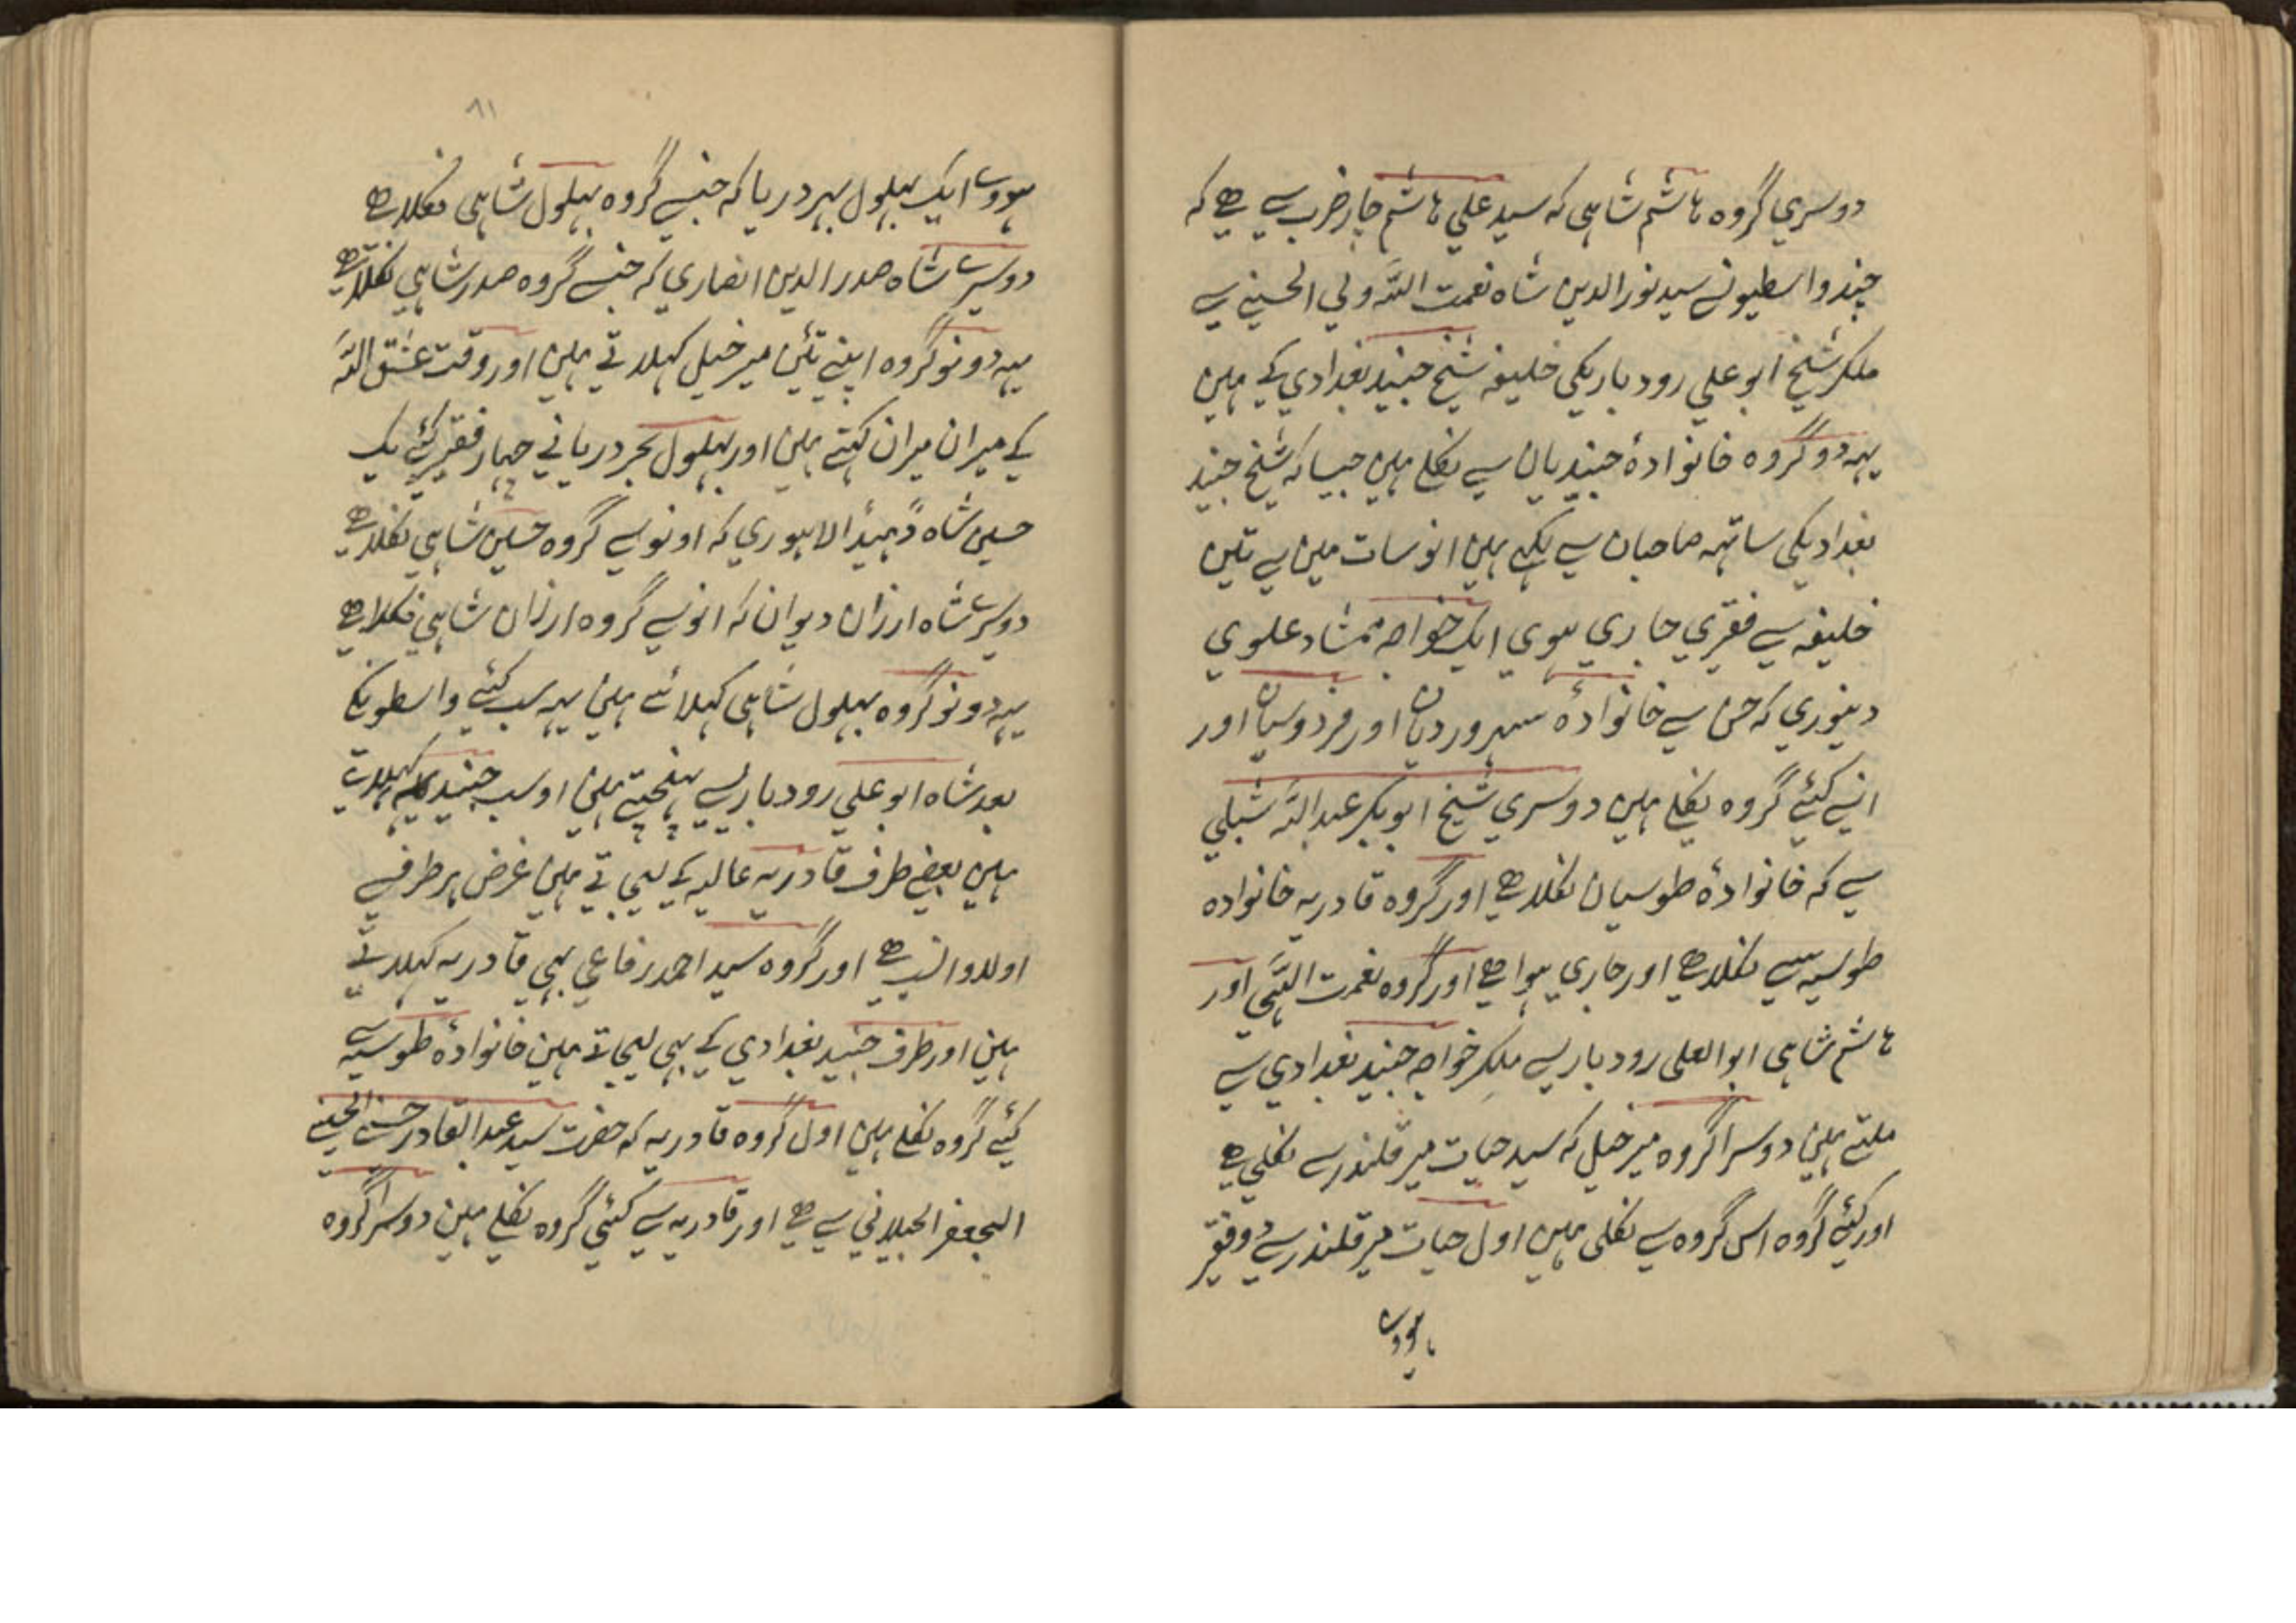 دوسري گروه هاشم شاہی که سید علي هاشم چار ضرب سے هے که
چند واسطیونسے سید نور الدین شاه نعمت اللّه ولي الحسیني سے
ملکر شیخ ابو علي رودباریکي خلیفہ شیخ جنید بغدادي کے ہین
یہہ دو گروه خانوادهٔ جنیدیان سے نکلے ہین جیسا که شیخ جنید
بغدادیکي ساتهہ صاحبان سے نکلے ہین انو سات مین سے تین
خلیفہ سے فقیري جاري ہوي ایک خواجہ ممشاد علوي
دینوري که جن سے خانوادهٔ سہروردیان اور فردوسیان اور
انسے کئیے گروه نکلے ہین دوسري شیخ ابو بکر عبد اللّه شبلي
سے که خانوادهٔ طوسیان نکلا هے اور گروه قادریہ خانواده
طوسیہ سے نکلا هے اور جاري ہوا هے اور گروه نعمت اللّهي اور
هاشم شاہی ابو العلی رودباریسے ملکر خواجہ جنید بغدادي سے
ملتے ہین دوسرا گروه میر خیل که سید حیات میر قلندر سے نکلي هے
اور کئیے گروه اس گروه سے نکلی ہین اول حیات میر قلندر سے دو فقیر
ہووے
۸۱
ہووے ایک بہلول بہر دریا که جنسے گروه بہلول شاہی نکلا هے
دوسرے شاه صدر الدین انصاري که جنسے گروه صدر شاہي نکلا هے
یہہ دونو گروه اپنے تئین میر خیل کہلاتے ہین اور وقت عشق اللّه
کے میران میران کہتے ہین اور بہلول بحر دریانے چہار فقیر کئے یک
حسین شاه ڈہیڈا لاہوري که اونو سے گروه حسین شاہي نکلا هے
دوسرے شاه ارزان دیوان که انوسے گروه ارزان شاہي نکلا هے
یہہ دونو گروه بہلول شاہی کہلائے ہین یہہ سب کئیے واسطونکے
بعد شاه ابو علي رودباریسے پہنچتے ہین او سب جنیدیہ کہلاتے
ہین بعضے طرف قادریہ عالیہ کے لیجاتے ہین غرض ہر طرف سے
اولدوالنسب هے اور گروه سید احمد رفاعي بہي قادریہ کہلاتے
ہین اور طرف جنید بغدادي کے بہي لیجاتے ہین خانوادهٔ طوسیہ سے
کئیے گروه نکلے ہین اول گروه قادریہ که حضرت سید عبد القادر حسنے الحسینے
الجعفر الجیلاني سے هے اور قادریہ سے کئیے گروه نکلے ہین دوسرا گروه